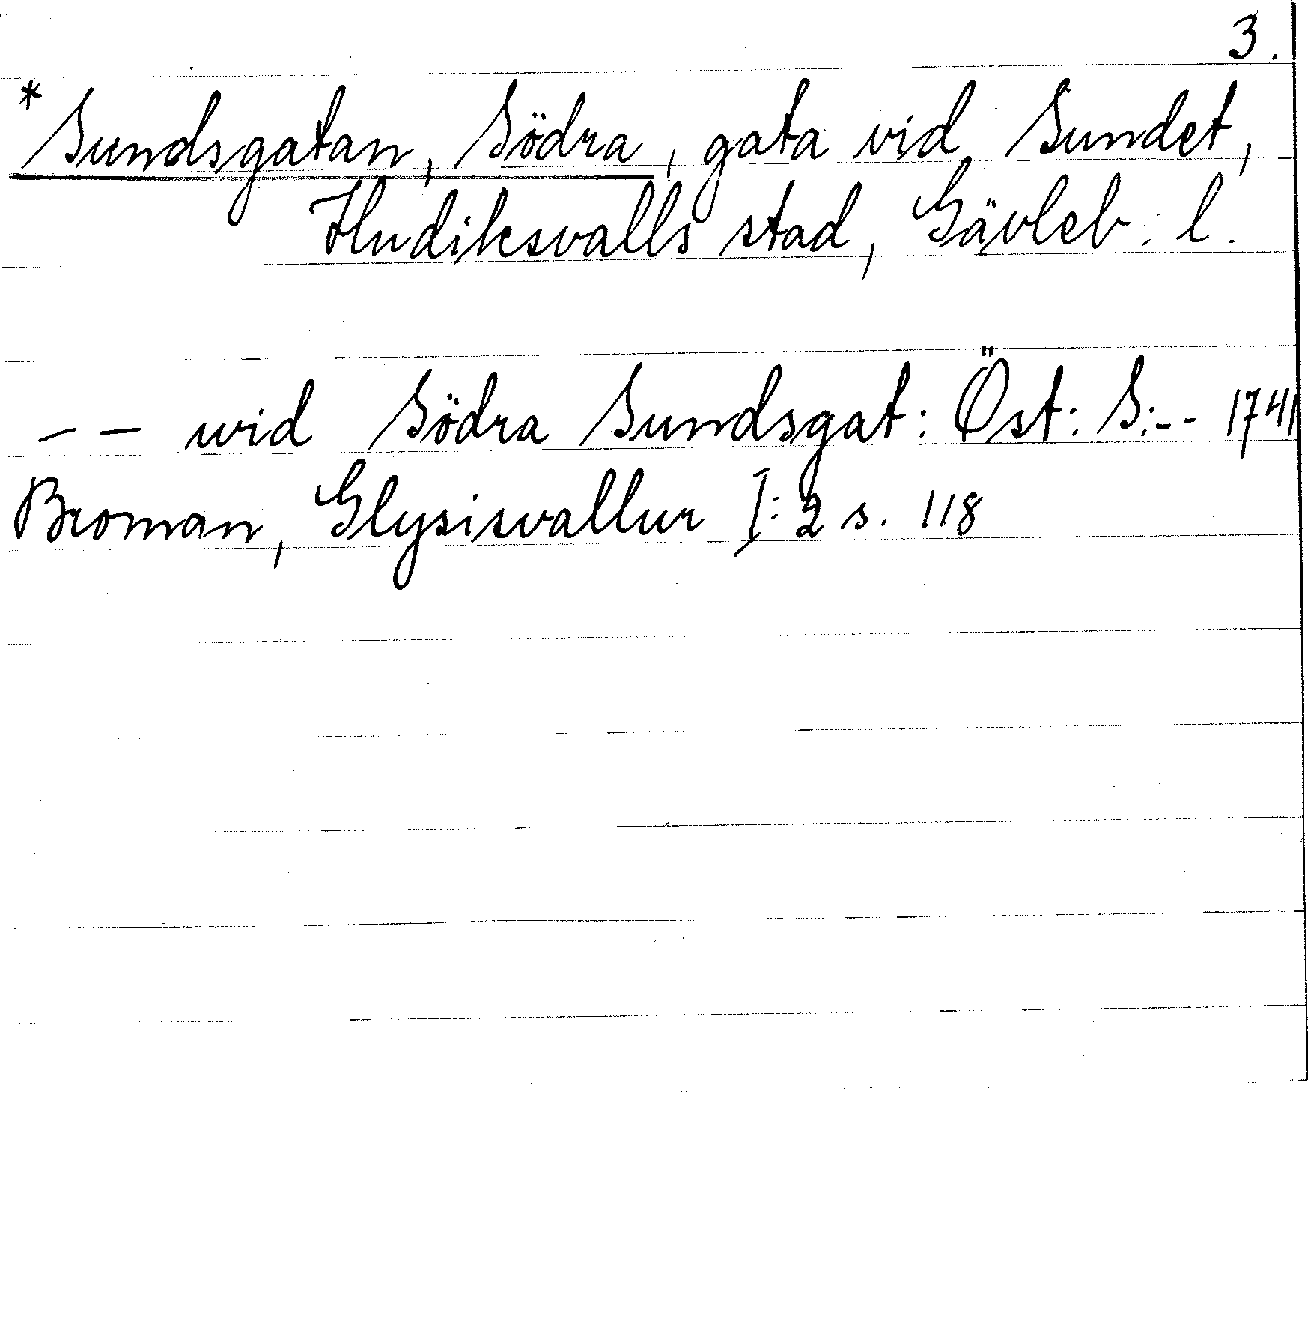 3.
*Sundsgatan, Södra, gata vid Sundet,
Hudiksvalls stad, Gävleb. l.
– – wid Södra Sundsgat: Öst: S:-- 1741
Broman, Glysisvallur I: 2 s. 118